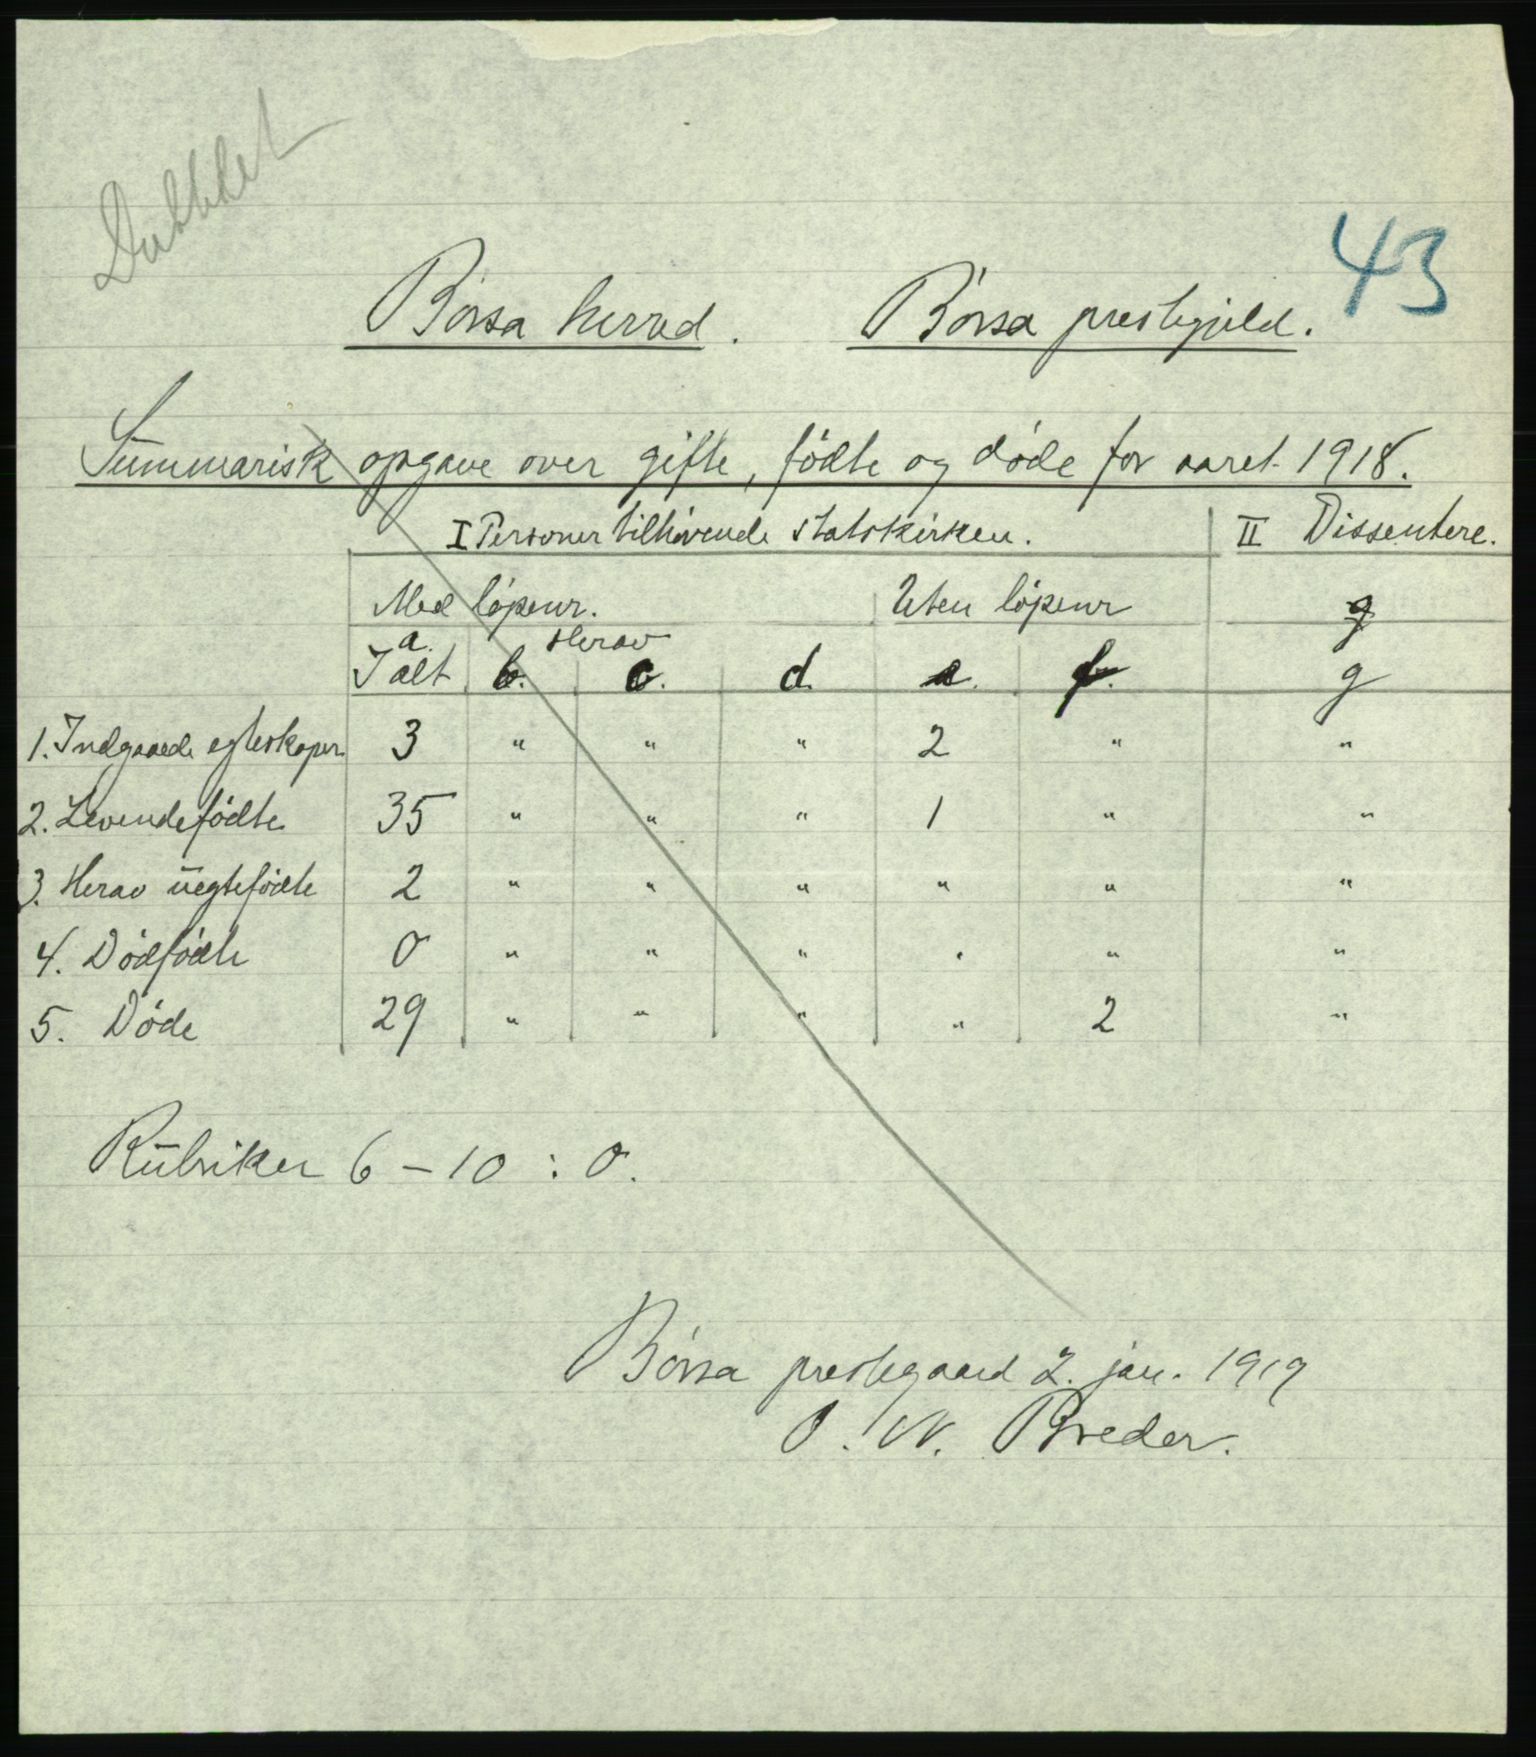 Dubblet
43
Börsa herred. Börsa prestegjeld.
Summarisk opgave over gifte, födte og döde for aaret 1918.
I Personer tilhörende statskirken. II Dissentere.
Med löpenr. Uten löpenr g
a. Herav
I alt b. c. d. e. f. g
1. Indgaaede egteskaper 3 " " " 2 " "
2. Levendefödte 35 " " " 1 " "
3. Herav uegtefödte 2 " " " " " "
4. Dödfödte 0 " " " " " "
5. Döde 29 " " " " 2 "
Rubriker 6 – 10 : 0.
Börsa prestegaard 2. jan. 1919
O. W. Breder.